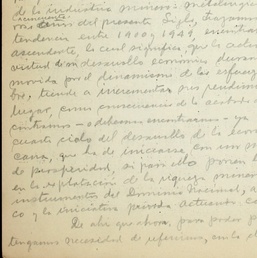 de la industria minero-metalúrgi
del presente Siglo, trazam
tendencia entre 1900 y 1941, encontra
ascendente, la cual significa que la activ
vidad en desarrollo económico duran
movida por el dinamismo de los esfuerz
bre, tiende a incrementar su rendim
lugar, como consecuencia de lo
encontrarnos ya
cuarto ciclo del desarrollo de la econ
cana, que ha de iniciarse, con un
de prosperidad, si para ello ponen
en la explotación de la riqueza miner
instrumentos del Dominio Nacional, a
co y la iniciativa privada actuando co
De ahí que ahora, para poder
tengamos necesidad de referirnos, en la